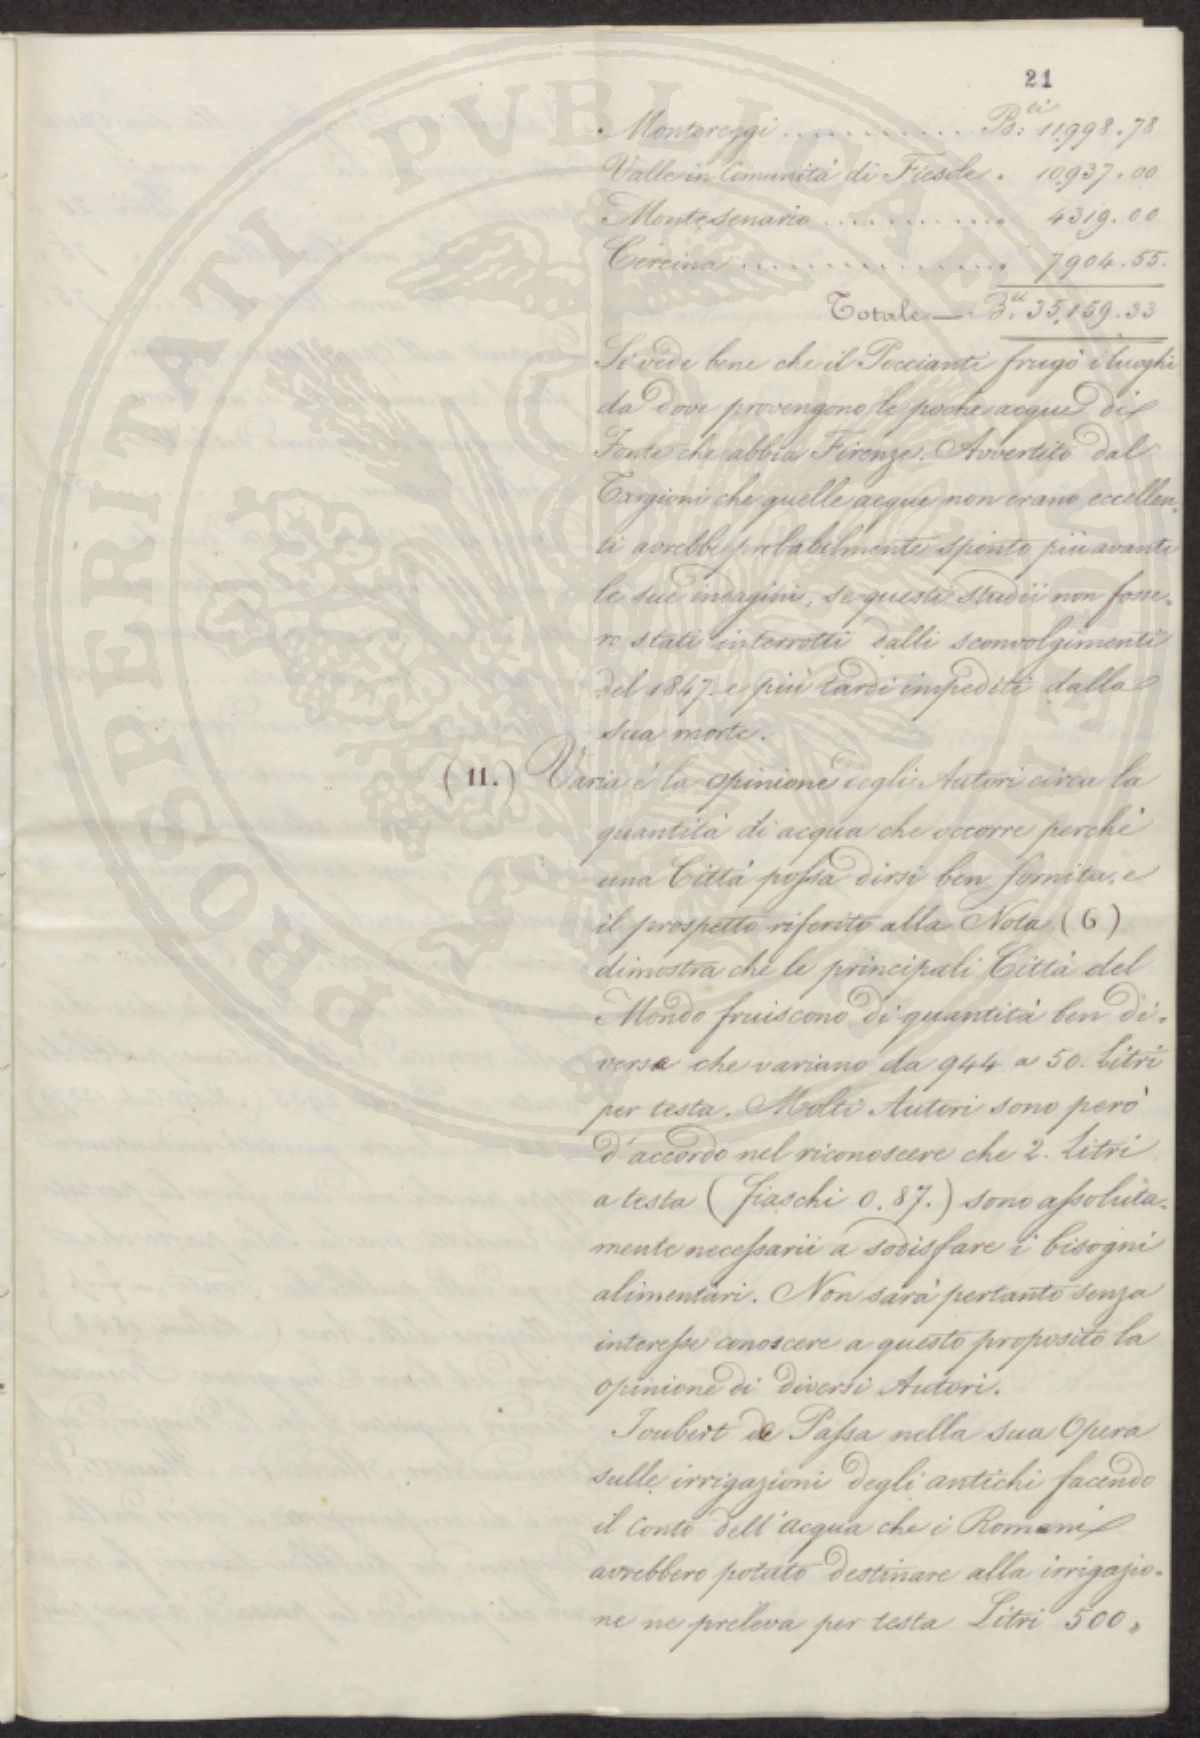 21
Montereggi ............ B.ci 11,998.78
Valle in Comunità di Fiesole . 10,937.00
Montesenario ............ 4319.00
Cercina ................. 7904.55.
Totale — B.ci 35,159.33
Si vede bene che il Poccianti frugò i luoghi
da dove provengono le poche acque di
Fonte che abbia Firenze. Avvertito dal
Targioni che quelle acque non erano eccellen=
ti avrebbe probabilmente spinto più avanti
le sue indagini, se questi studii non fosse=
ro stati interrotti dalli sconvolgimenti
del 1847. e più tardi impediti dalla
sua morte.
(11.) Varia è la opinione degli Autori circa la
quantità di acqua che occorre perchè
una Città possa dirsi ben fornita, e
il prospetto riferito alla Nota (6)
dimostra che le principali Città del
Mondo fruiscono di quantità ben di=
versa che variano da 944 a 50. Litri
per testa. Molti Autori sono però
d'accordo nel riconoscere che 2. Litri
a testa (fiaschi 0.87.) sono assoluta=
mente necessarii a sodisfare i bisogni
alimentari. Non sarà pertanto senza
interesse conoscere a questo proposito la
opinione di diversi Autori.
Joubert de Passa nella sua Opera
sulle irrigazioni degli antichi facendo
il Conto dell'acqua che i Romani
avrebbero potuto destinare alla irrigazio=
ne ne preleva per testa Litri 500,
PROSPERITATI PUBLICAE AUGENDAE